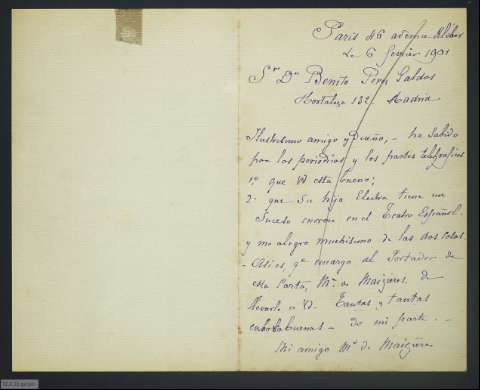 Paris 46 avenue Kléber
Le 6 février 1901
Sr Dn Benito Perez Galdos
Hortaleza 132 Madrid
Ilustrisimo amigo y dueño, - he sabido
por los periodicos y los partes telegraficos
1º que Vd esta bueno;
2º que Su hija Electra tiene un
Suceso enorme en el Teatro Español.
y me alegro muchisimo de las dos cosas.
- Asi es qe encargo al Portador de
esta Carta, Mr. de Maizière de
llevarle a Vd. Tantas y tantas
enhorabuenas - de mi parte. -
Mi amigo Mr de Maizière